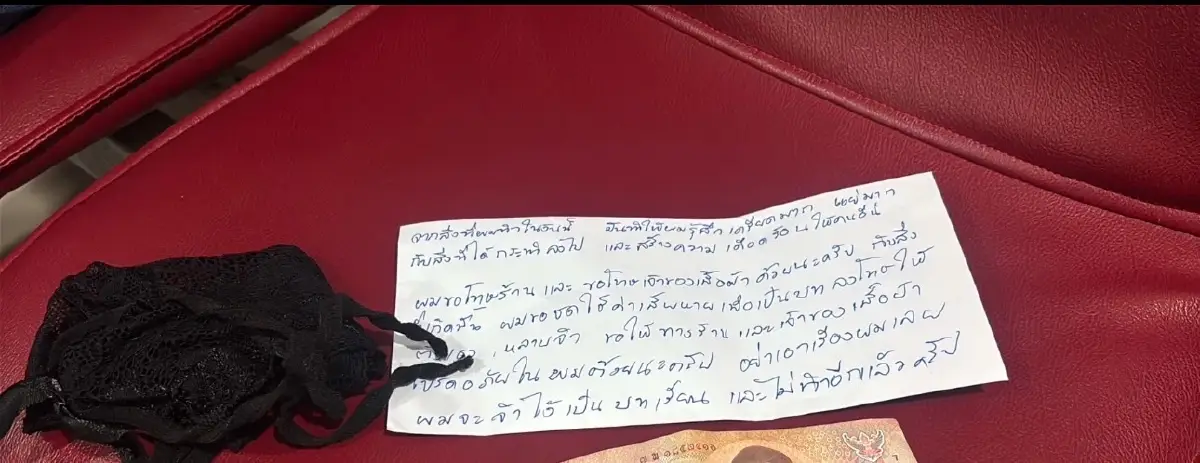 จากสิ่งที่ผมทำในวันนี้ มันทำให้ผมรู้สึกเครียดมาก แย่มาก
กับสิ่งที่ได้กระทำลงไป และสร้างความเดือดร้อนให้คนอื่น
ผมขอโทษร้าน และ ขอโทษเจ้าของเสื้อผ้าด้วยนะครับ กับสิ่ง
ที่เกิดขึ้น ผมขอชดใช้ค่าเสียหายเพื่อเป็นบทลงโทษให้
ตัวเอง หลาบจำ ขอให้ทางร้านและเจ้าของเสื้อผ้า
โปรดอภัยในผมด้วยนะครับ อย่าเอาเรื่องผมเลย
ผมจะจำไว้เป็นบทเรียน และไม่ทำอีกแล้วครับ